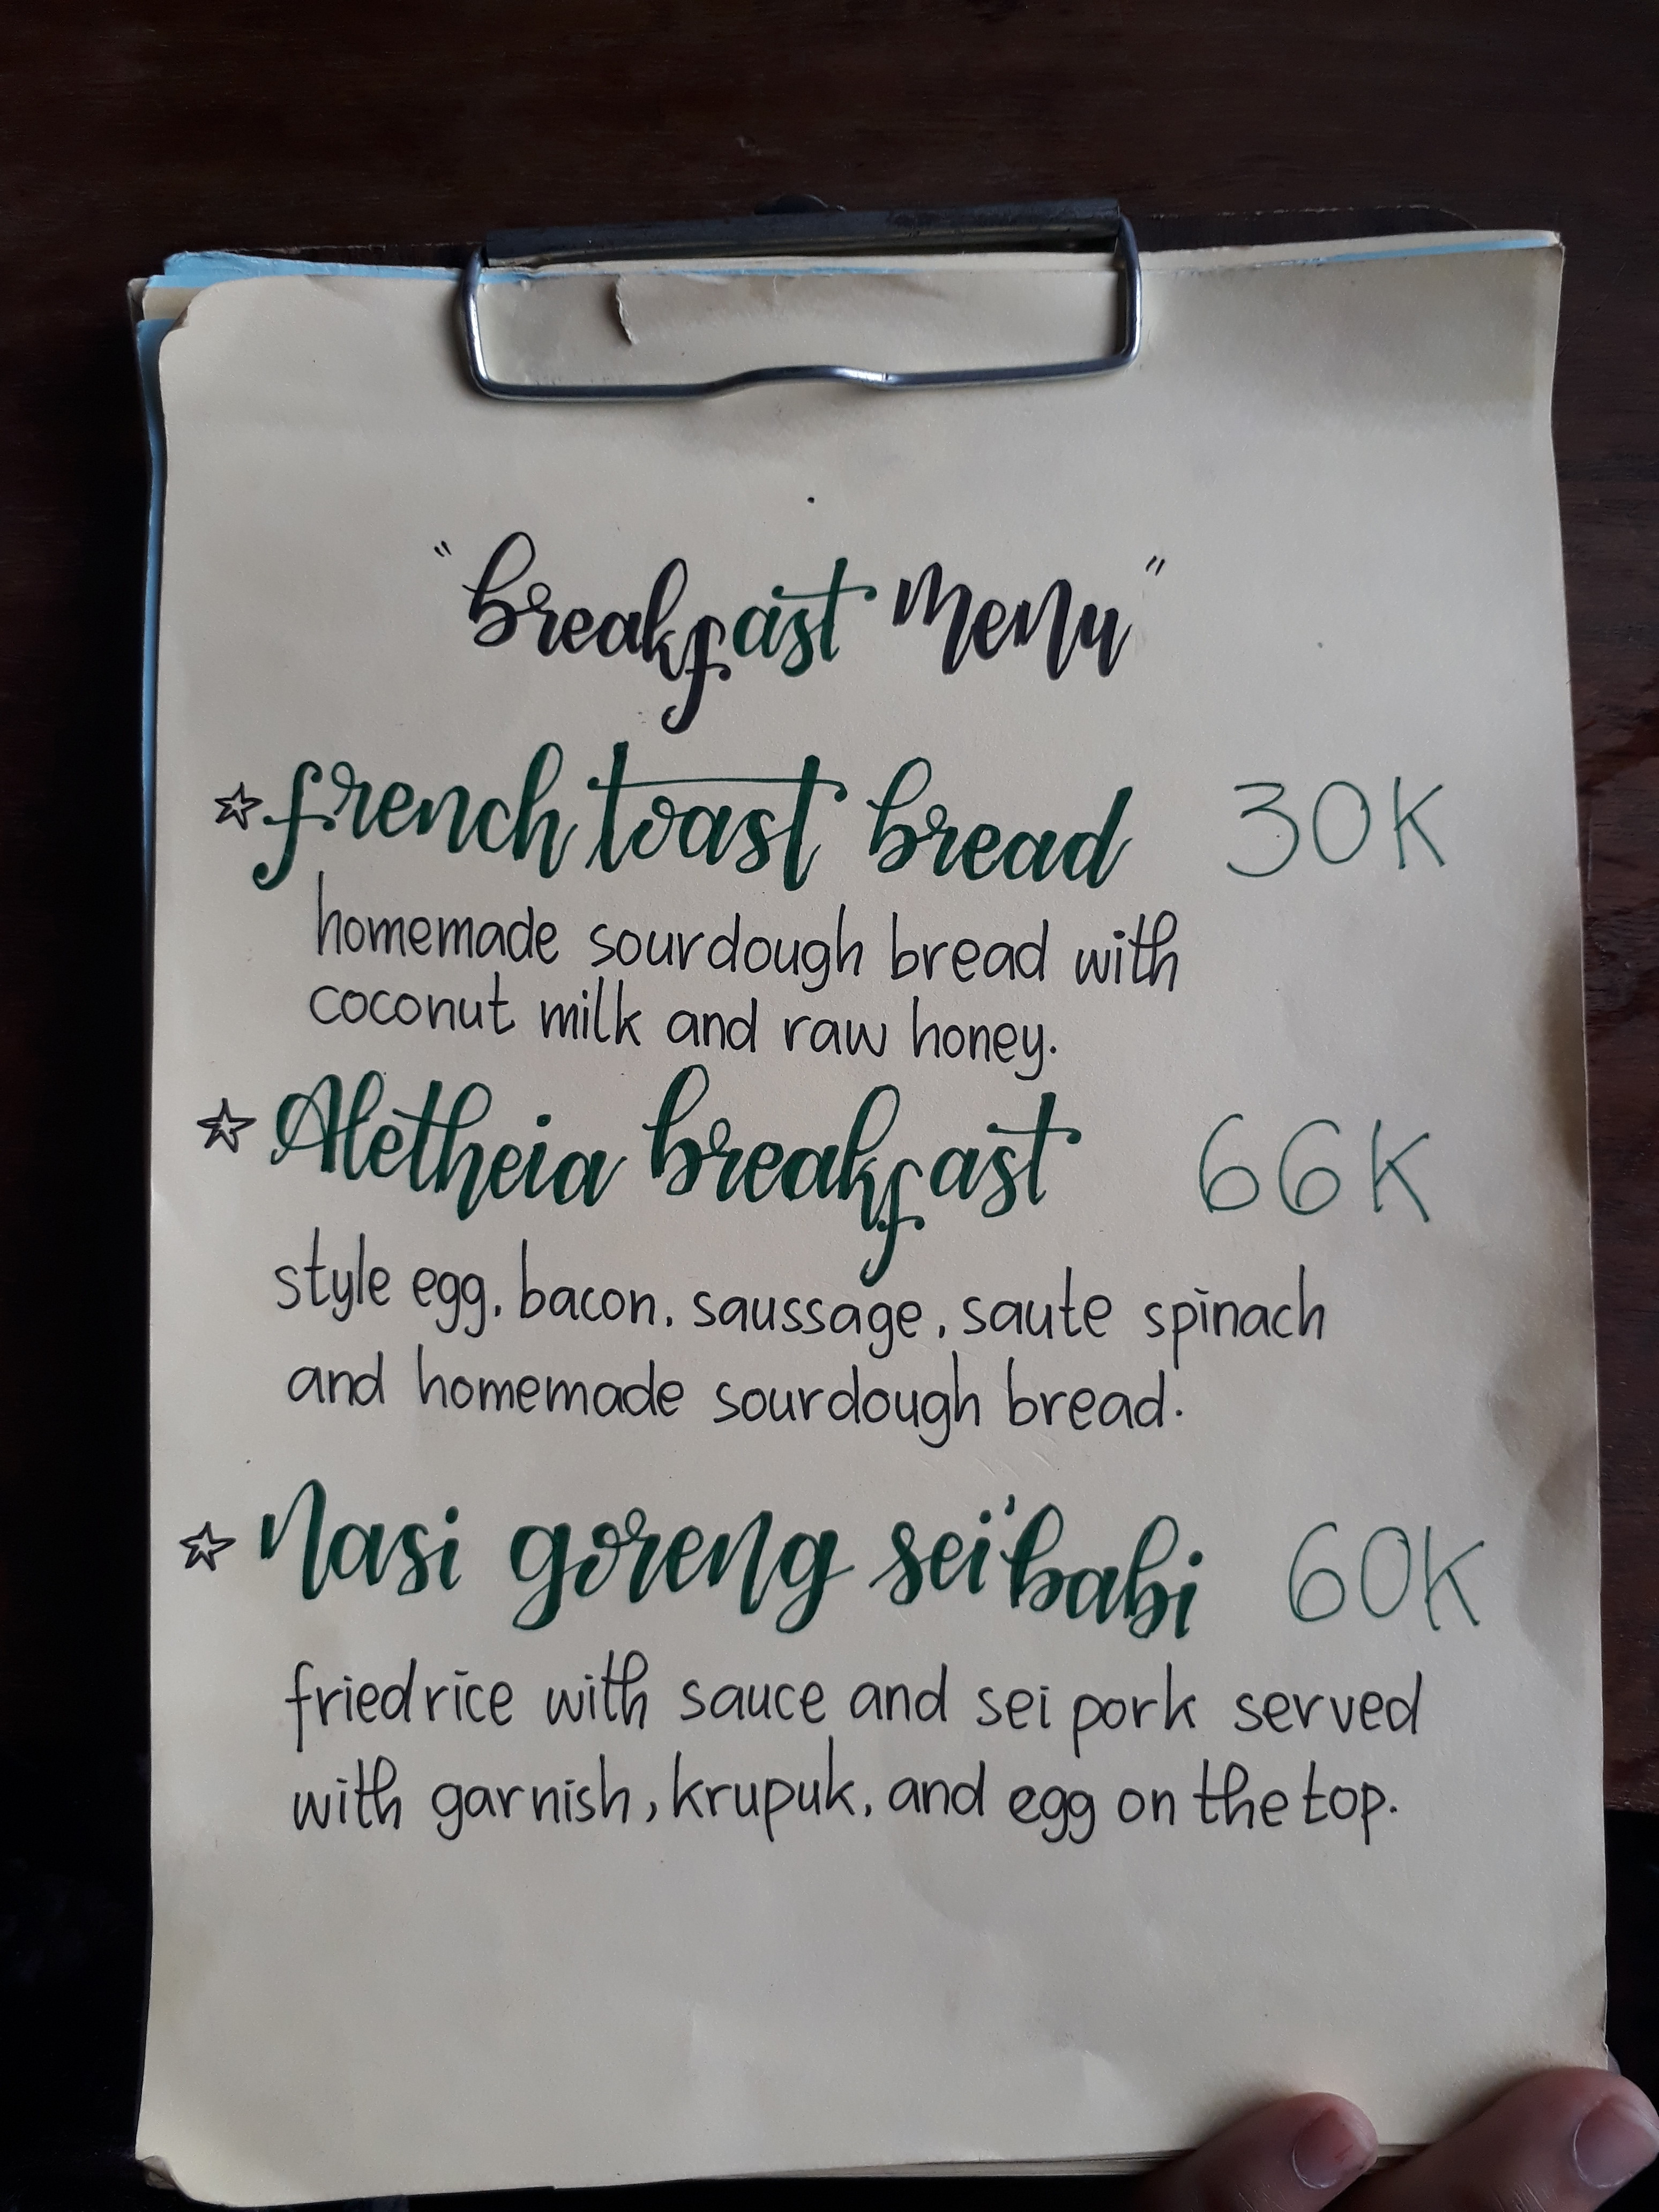 "breakfast menu"
french toast bread 30K
homemade sourdough bread with
coconut milk and raw honey.
Aletheia breakfast 66K
style egg, bacon, saussage, saute spinach
and homemade sourdough bread.
Nasi goreng sei' babi 60K
fried rice with sauce and sei pork served
with garnish, krupuk, and egg on the top.